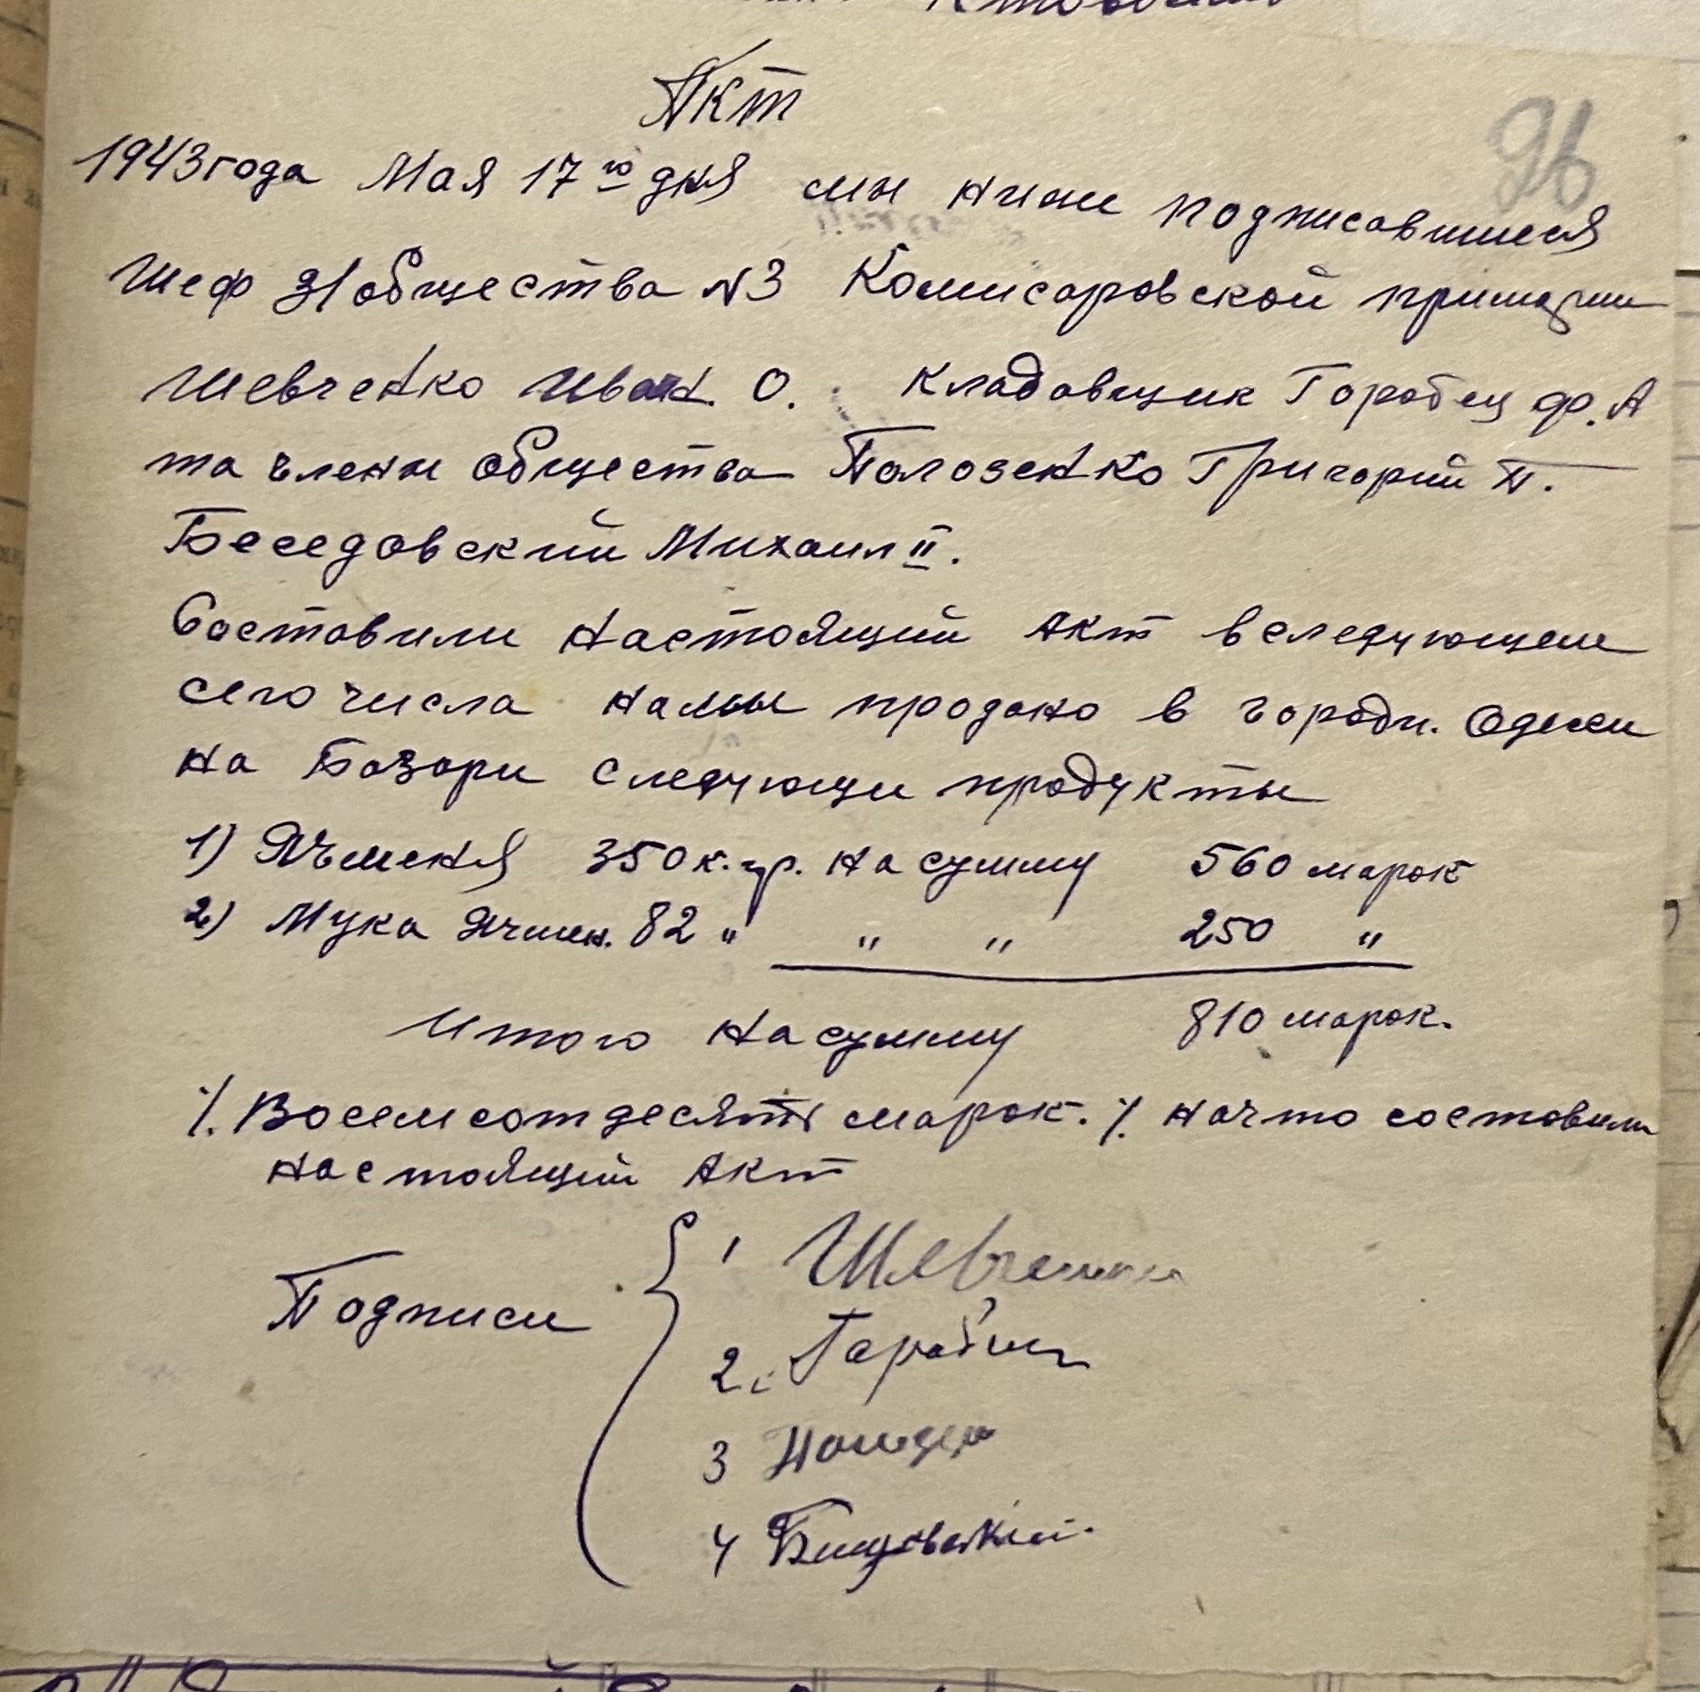 Акт
96
1943 года Мая 17го дня мы ниже подписавшиеся
Шеф З/общества №3 Комисаровской примарии
Шевченко Иван. О. кладовщик Горобец Ф. А
та члены общества Полозенко Григорий П.
Беседовский Михаил II.
Составили настоящий Акт в следующем
сего числа намы продано в городи. Одеси
на Базари следующи продукты
1) Ячменя 350 к.гр. на сумму 560 марок
2) Мука Ячмен. 82 " " " 250 "
Итого на сумму 810 марок.
·/. Восемсот десять марок. ·/. начто составили
настоящий Акт
Подписи
1 Шевченко
2. Горобец
3
4